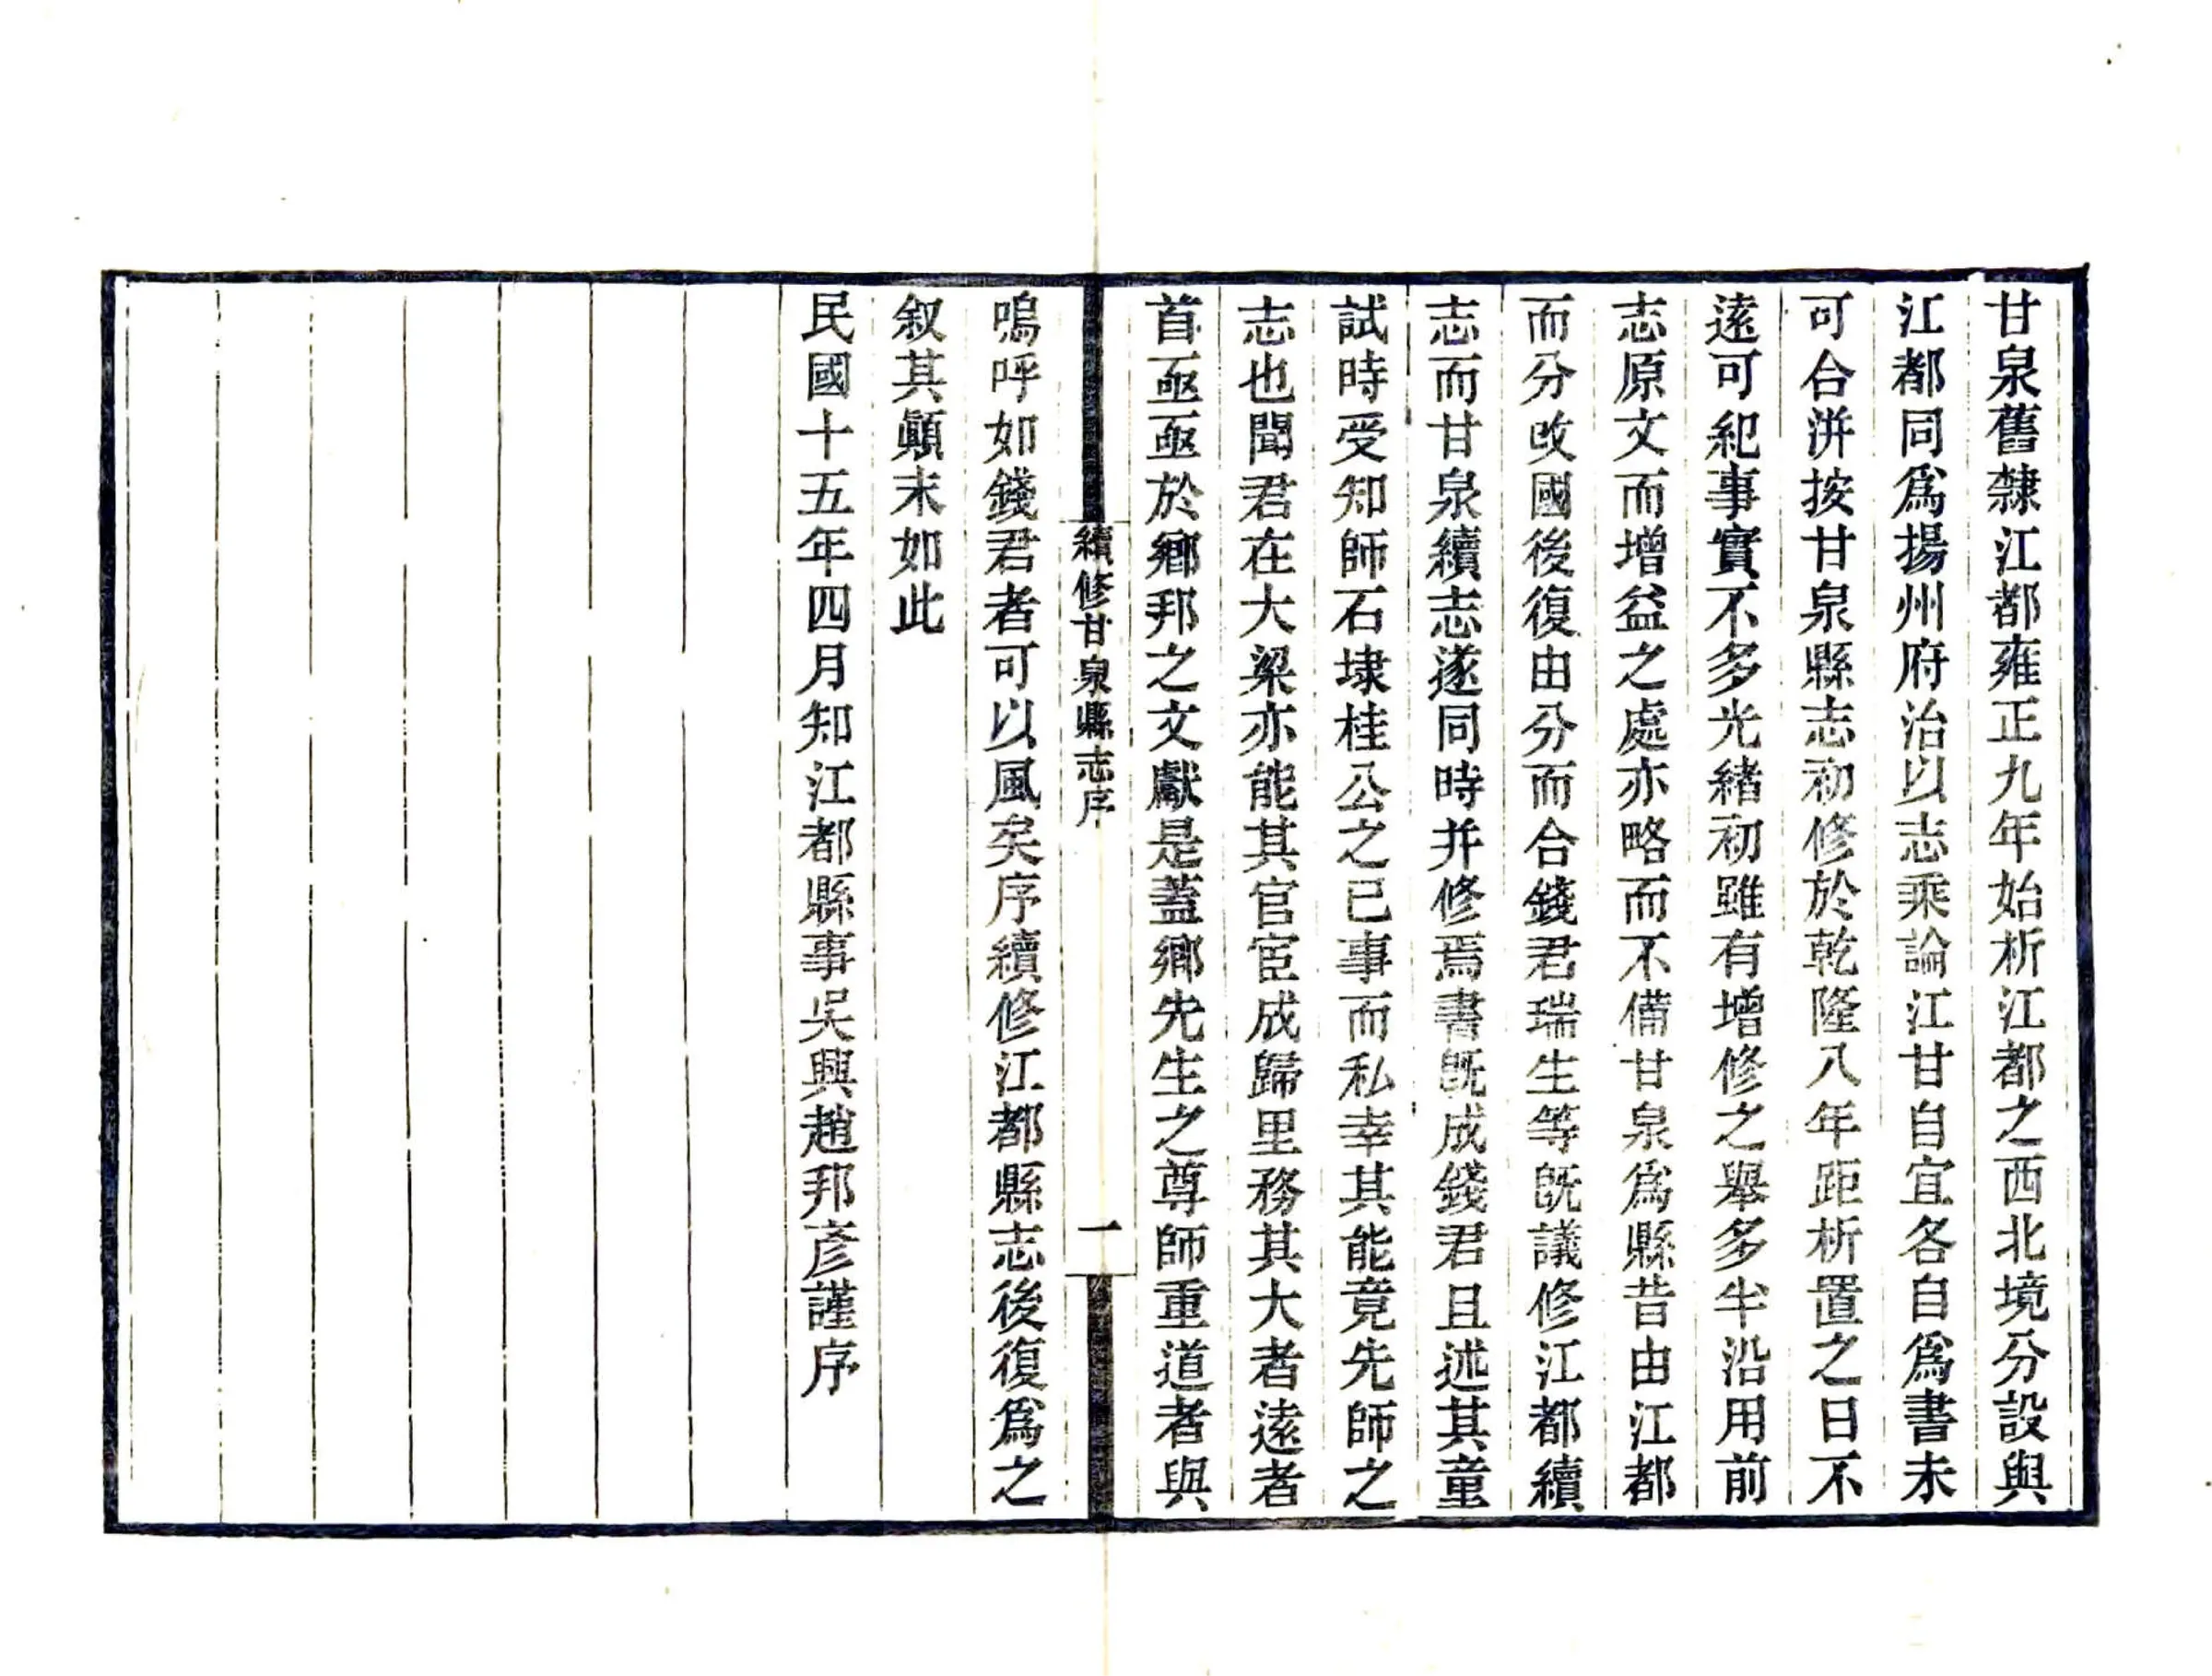 甘泉舊隸江都雍正九年始析江都之西北境分設與
江都同爲揚州府治以志乘論江甘自宜各自爲書未
可合洴按甘泉縣志初修於乾隆八年距析置之日不
遠可紀事實不多光緒初雖有增修之舉多半沿用前
志原文而增益之處亦略而不備甘泉爲縣昔由江都
而分改國後復由分而合錢君瑞生等旣議修江都續
志而甘泉續志遂同時并修焉書旣成錢君且述其童
試時受知師石埭桂公之已事而私幸其能竟先師之
志也聞君在大梁亦能其官宦成歸里務其大者遠者
首亟亟於鄉邦之文獻是蓋鄉先生之尊師重道者與
續修甘泉縣志序
一
嗚呼如錢君者可以風矣序續修江都縣志後復爲之
叙其顚末如此
民國十五年四月知江都縣事吳興趙邦彥謹序